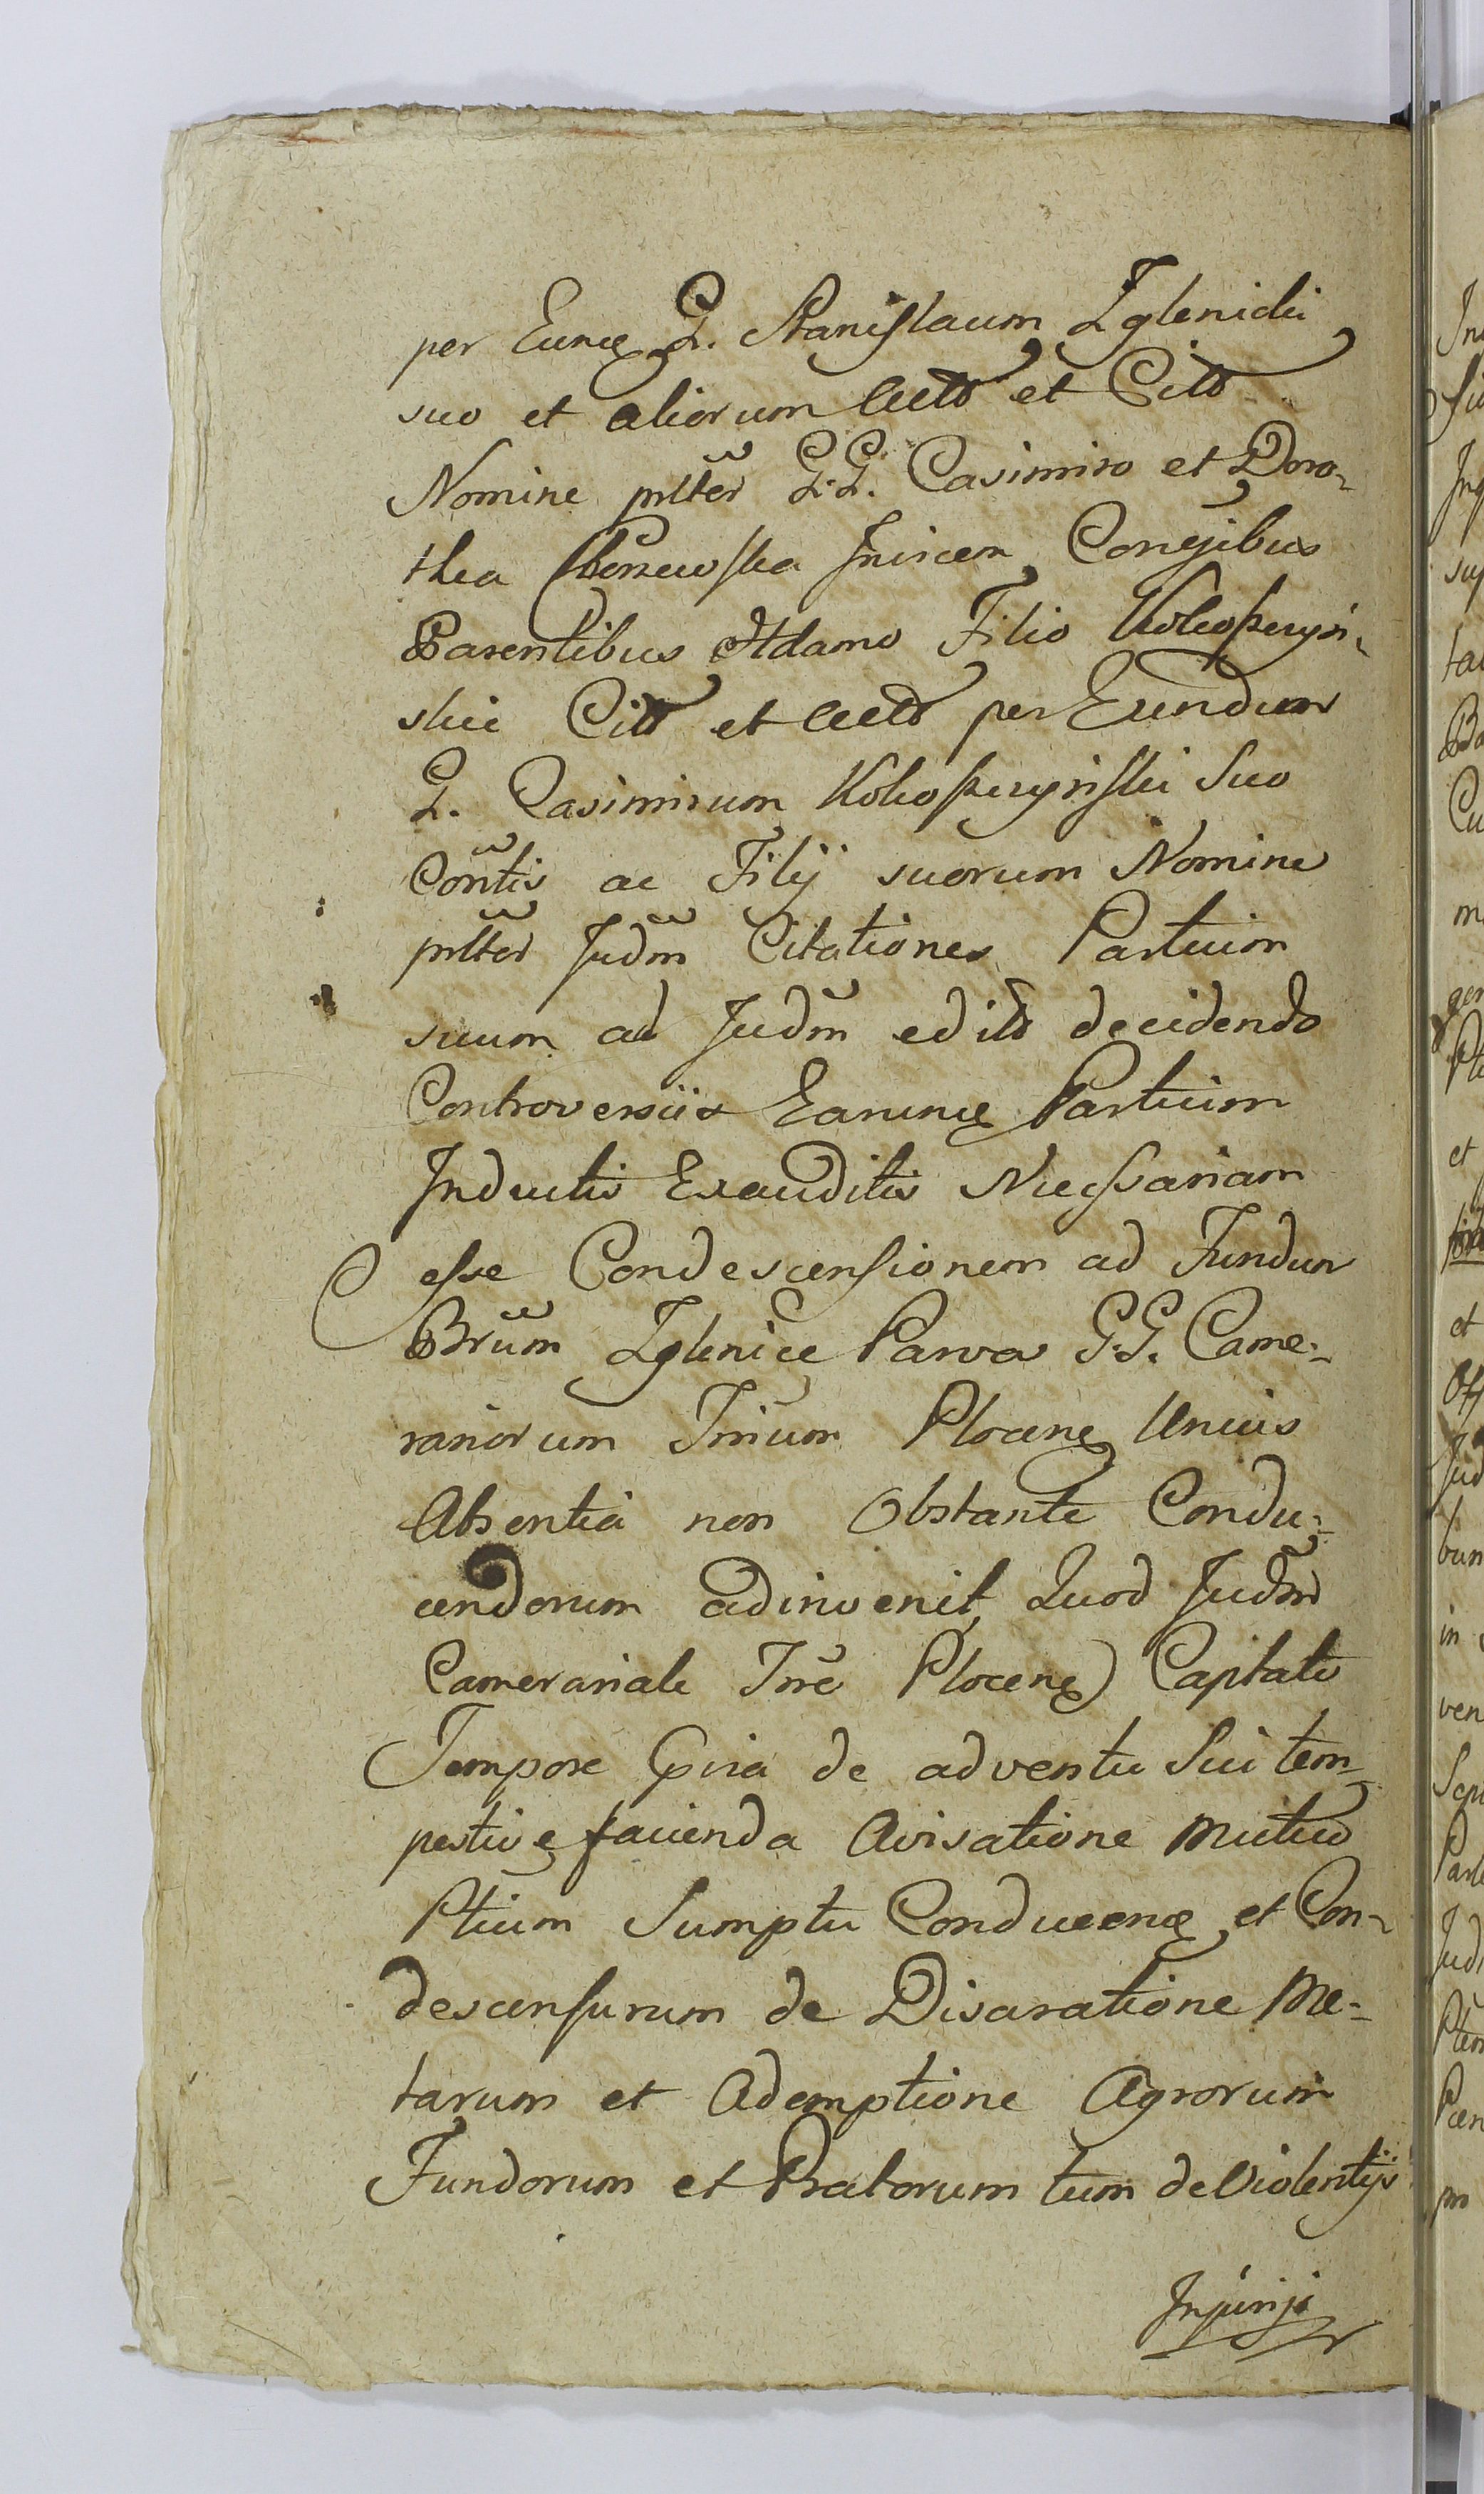 per Eund G. Stanislaum Zglenicki
suo et aliorum Actō et Citō
Nomine pnlter G.G. Casimiro et Doro-
thea Invicem Conẽjibus
Parentibus Adamo Filio Kokoszczyń-
skie Citō et Actō per Eundum
G. Casimirum Kokoszczyński Suo
Cõntis ac Filij suorum Nomine
pnlter Judm̃ Citationes Partium
suum ad Judm̃ editō decidendo
Controversiis Earund Partium
Inductis Exauditis Necessariam
esse Condescensionem ad Fundum
Brum̃ Zglenice Parva G.G. Came-
rariorum Trium Plocen Unius
Absentia non Obstante Condu-
cendorum adinvenit, Quod Judm̃
Camerariale Tre Plocen Captato
Tempore de adventu Sui tem-
pestive facienda Avisatione Mutuo
Ptium Sumptu Conducend et Con-
descensurum de Disaratione Me-
tarum et Ademptione Agrorum
Fundorum et Pratorum tum de Violentijs
Injurijs